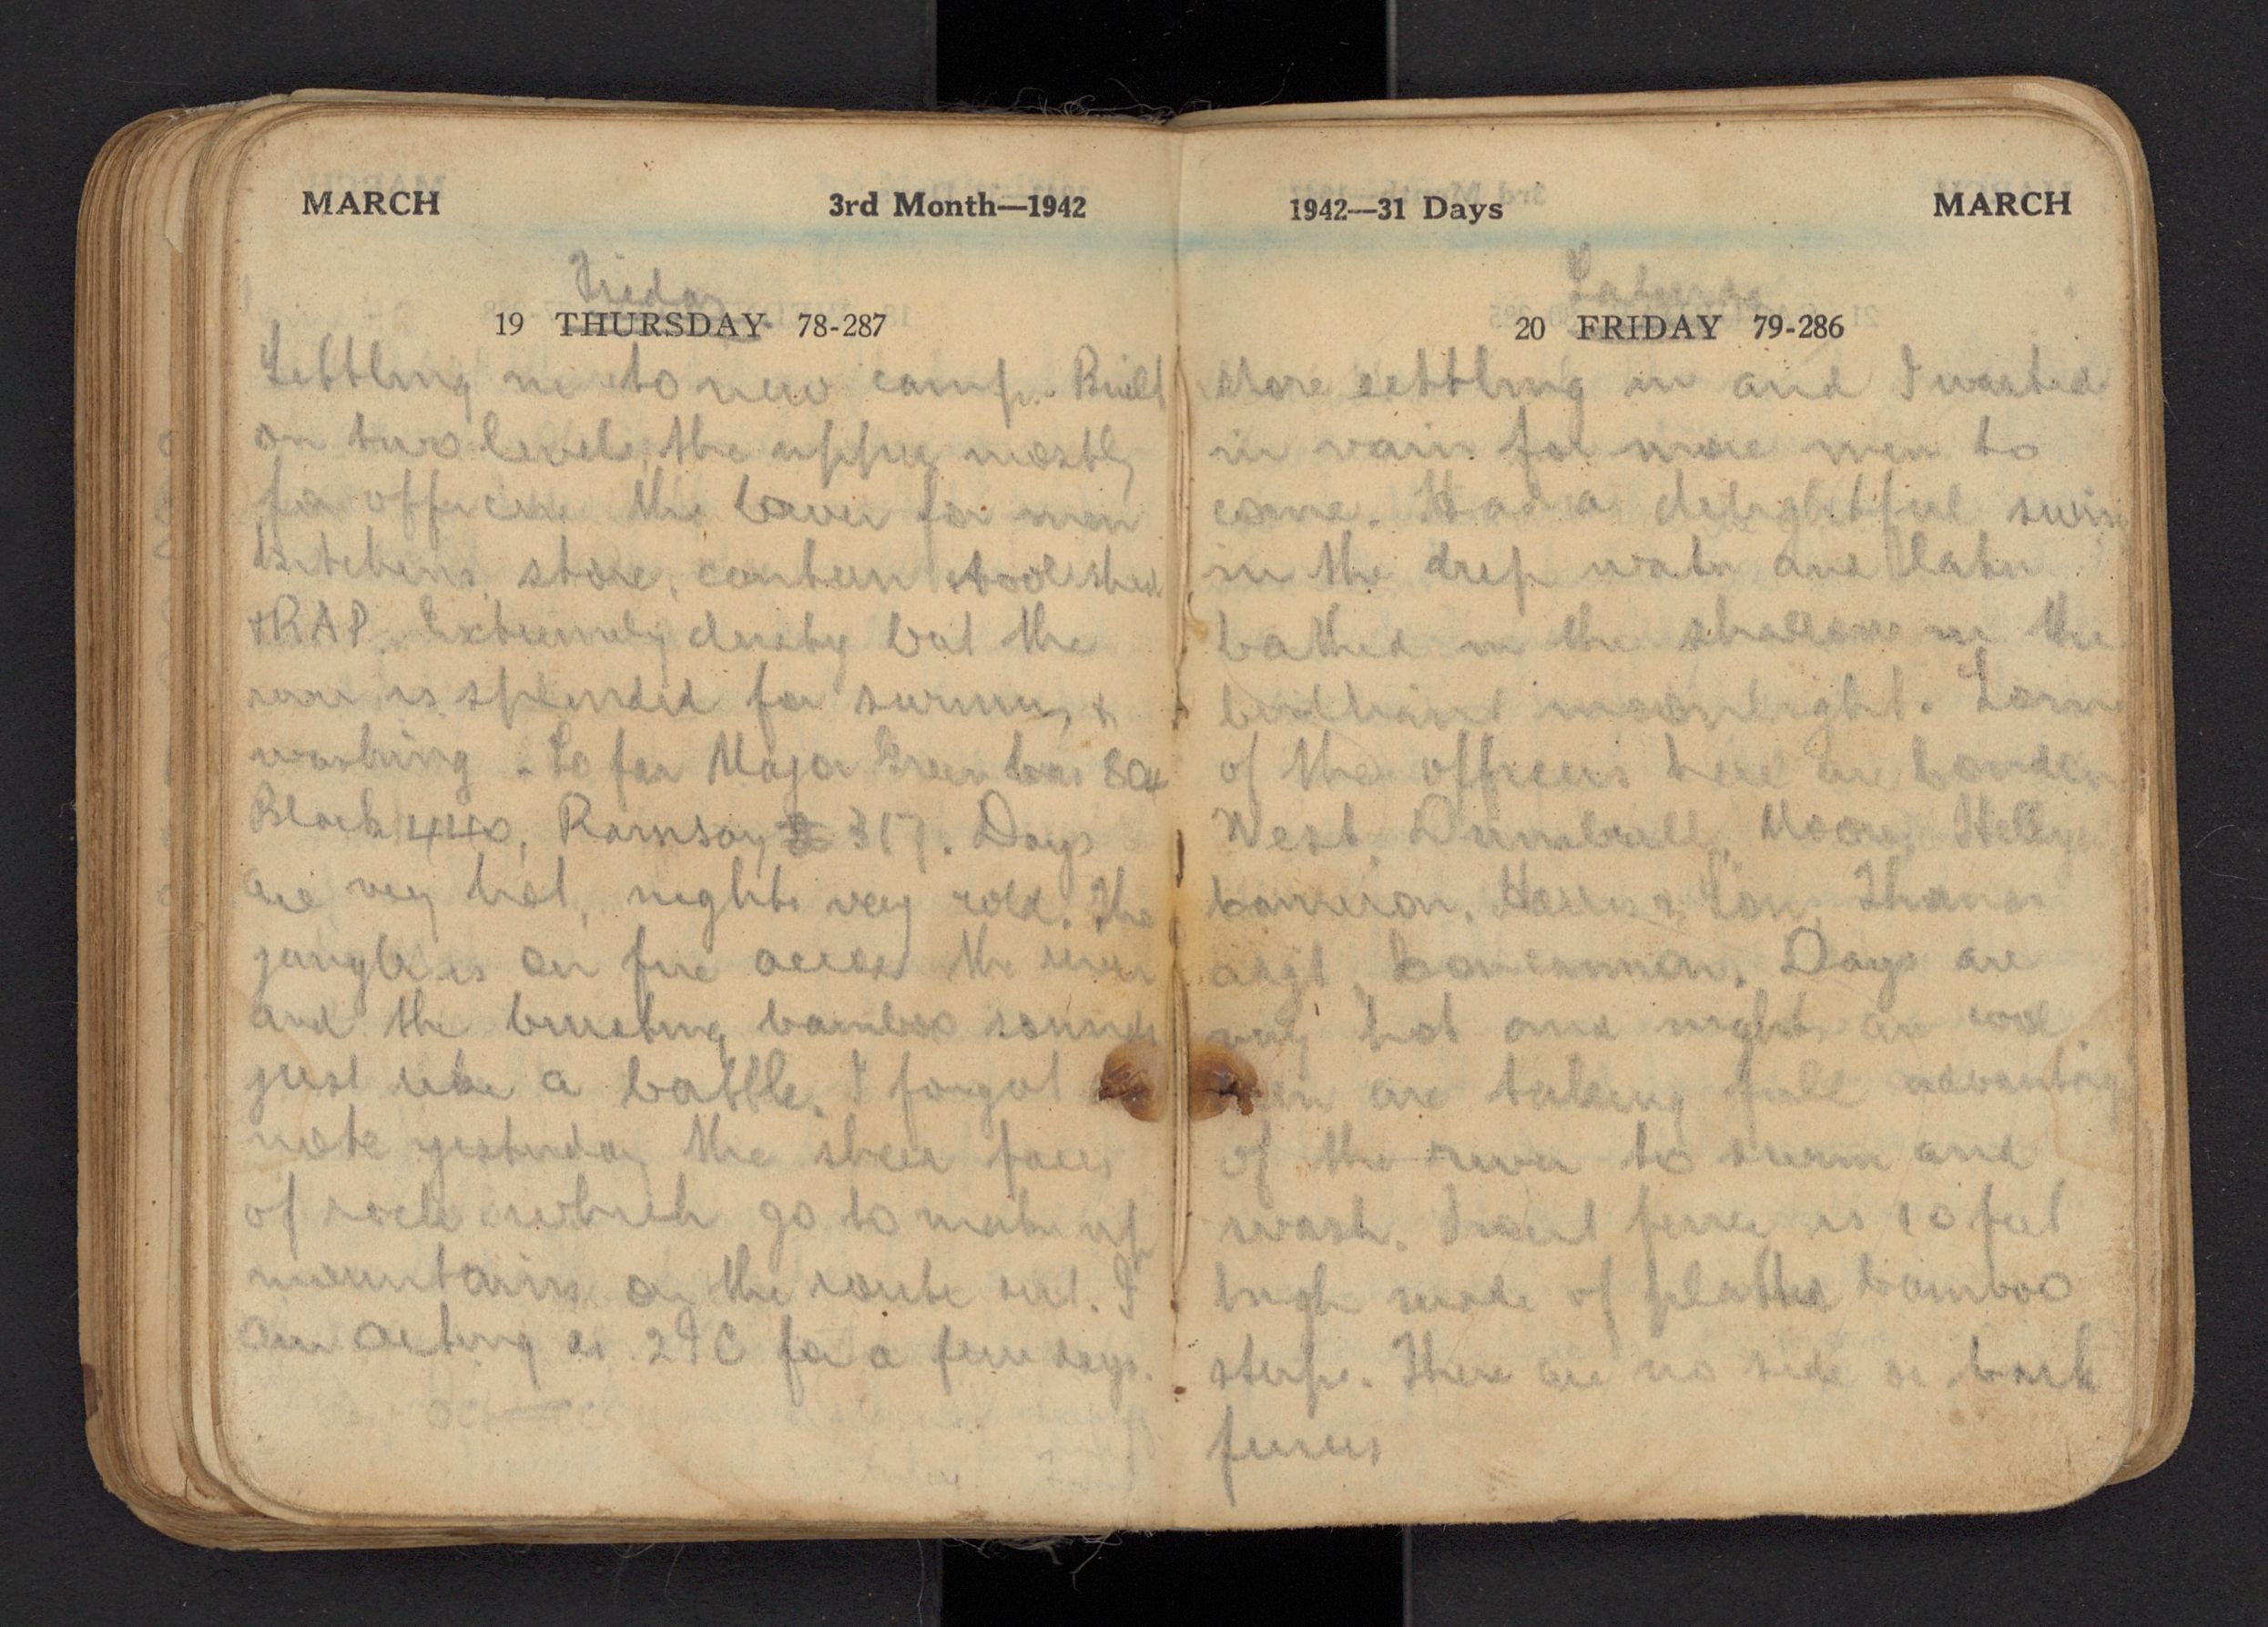 MARCH 3rd Month—1942
Friday
19 THURSDAY 78-287
Settling in to new camp. Built
on two levels, the upper mostly
for officers the lower for men
kitchens, store, canteen, tool shed
& RAP. Extremely dusty but the
river is splendid for swimming &
washing. So far Major Green has 804
Black 440, Ramsay 317. Days
are very hot, nights very cold. The
jungle is on fire across the river
and the bursting bamboo sounds
just like a battle. I forgot
note yesterday the sheer faces
of rock which go to make up
mountains on the route out. I
am acting as 2IC for a few days.
1942—31 Days MARCH
Saturday
20 FRIDAY 79-286
More settling in and I waited
in vain for more men to
come. Had a delightful swim
in the deep water and later
bathed in the shallows in the
brilliant moonlight. Some
of the officers here are
West, Dumbrell, Moore, Hellyer
Cameron, Harris, Thomas
Days are
very hot and nights are cool.
Men are taking full advantage
of the river to swim and
wash. Front fence is 10 feet
high made of platted bamboo
strips. There are no side or back
fences